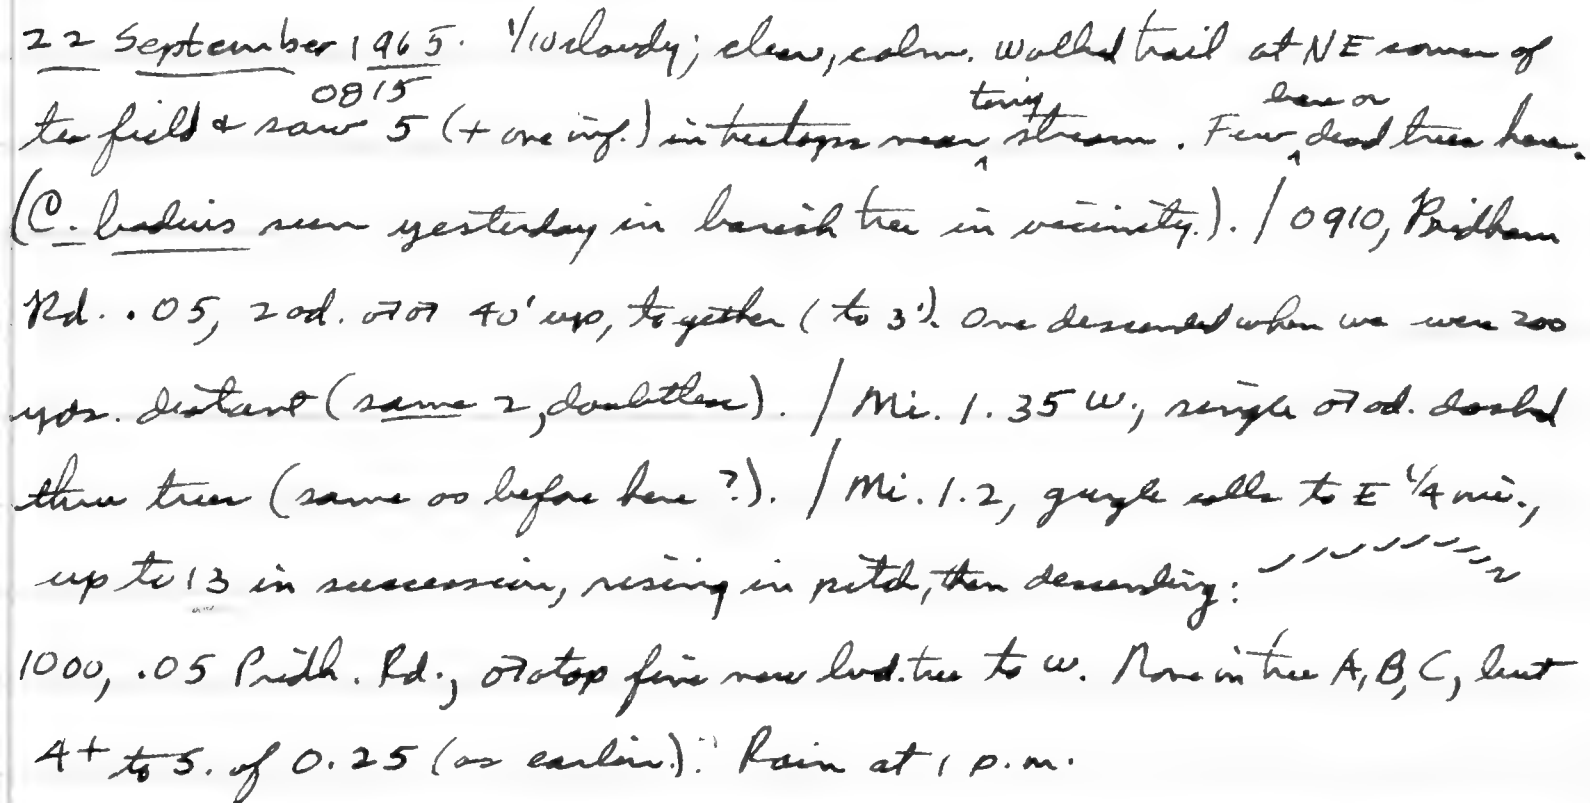 22 September 1965. 1/10 cloudy; clear, calm. Walked trail at NE corner of
0815 tiny bare or
tea field & saw 5 (+ one inf.) in treetops near ^ stream. Few ^ dead trees here.
(C. badius seen yesterday in barish tree in vicinity.). / 0910, Pridham
Rd. .05, 2 ad. ♂♂ 40' up, together (to 3'). One descended when we were 200
yds. distant (same 2, doubtless). / Mi. 1.35 W., single ♂ ad. dashed
thru trees (same as before here ?). / Mi. 1.2, gurgle calls to E 1/4 mi.,
up to 13 in succession, rising in pitch, then descending:
1000, .05 Pridh. Rd., ♂ atop fine new tree to W. None in tree A, B, C, but
4+ to S. of 0.25 (as earlier). Rain at 1 p.m.